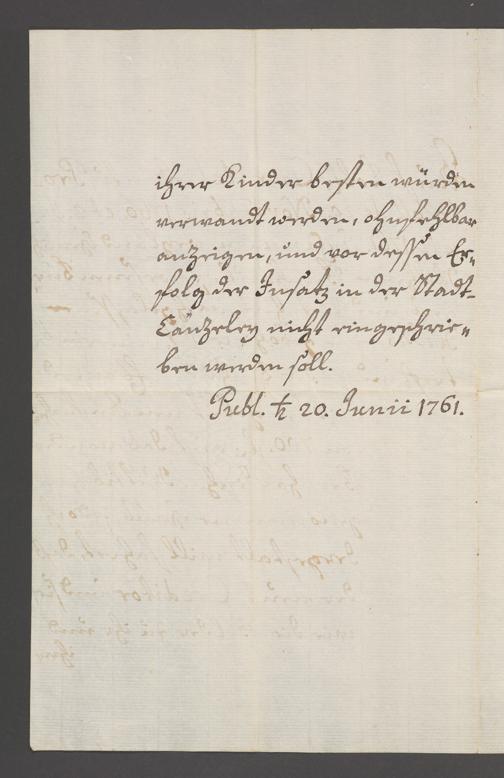 ihrer Kinder besten würden
verwandt werden, ohnfehlbar
anzeigen, und vor dessen Er-
folg der Insatz in der Stadt-
Cantzeley nicht eingeschrie-
ben werden soll.
Publ. ♄ 20. Junii 1761.